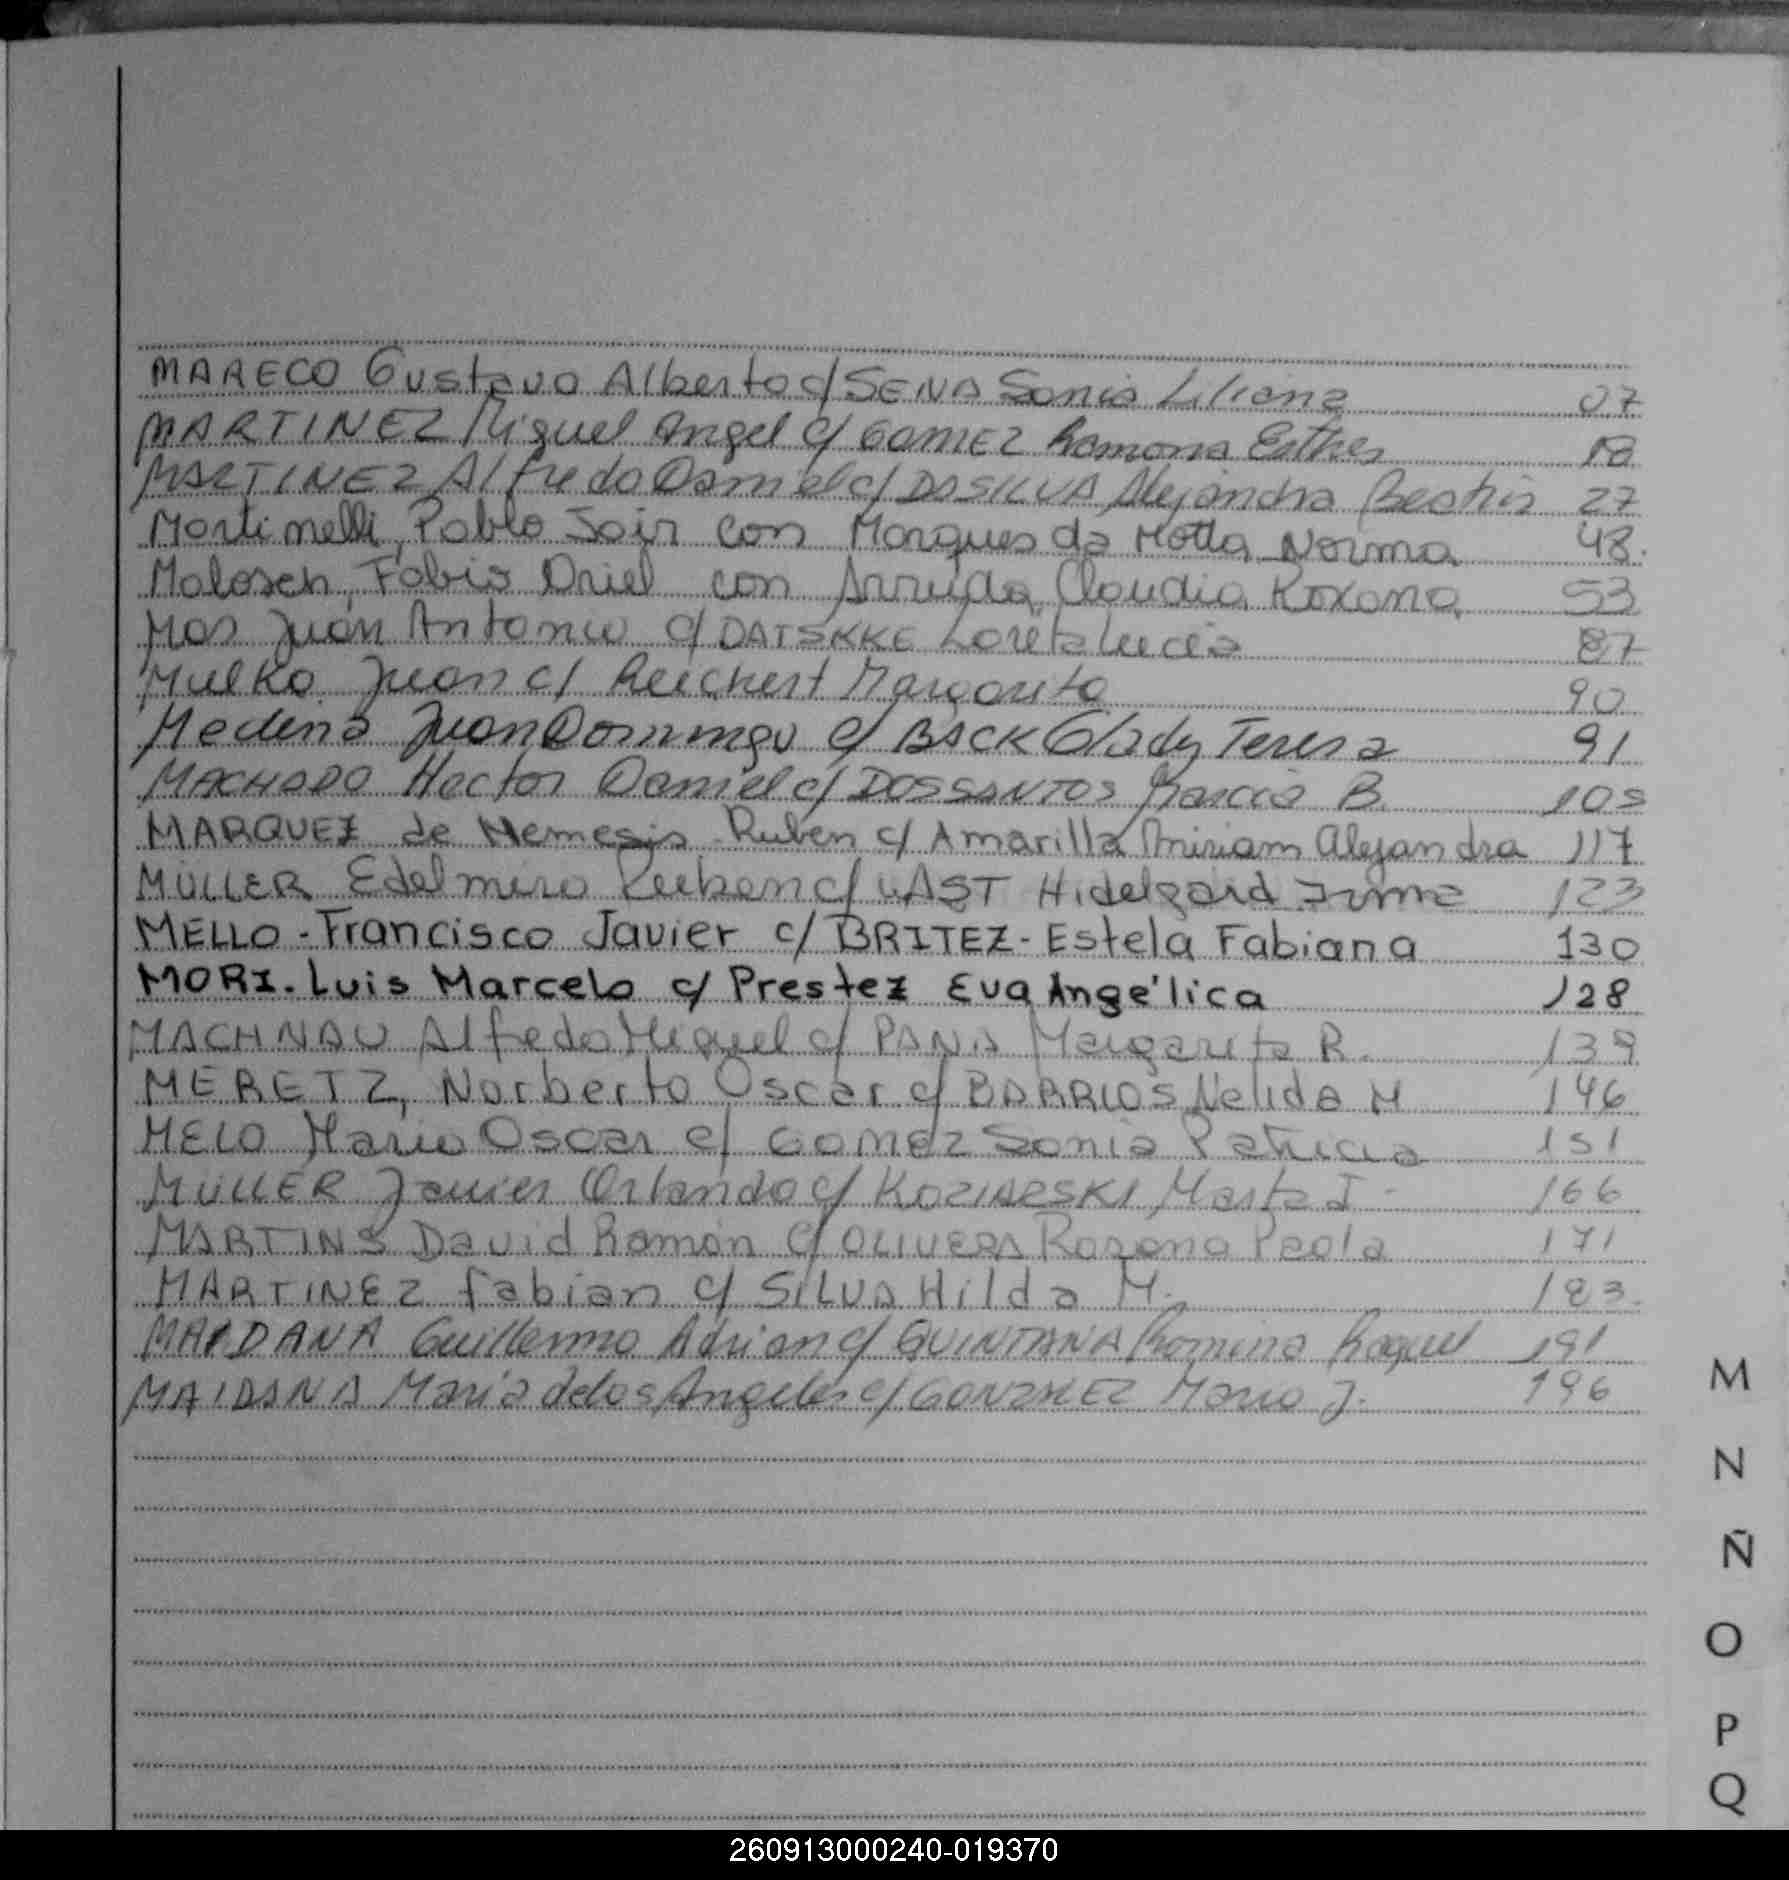 MARECO Gustavo Alberto c/ SENA Sonia Liliana 07
MARTINEZ Miguel Angel c/ GOMEZ Ramona Esther 18
MARTINEZ Alfredo Daniel c/ DASILVA Alejandra Beatriz 27
Martinelli, Pablo Jair con Marques da Motta Norma 48.
Malosch, Fabio Oriel con Arruda, Claudia Roxana 53
Mas Juan Antonio c/ DATSKKE Loreta Lucia 87
Mulko Juan c/ Reichert Margarita 90
Medina Juan Domingo c/ BACK Glady Teresa 91
MACHADO Hector Daniel c/ DOSSANTOS B. 105
MARQUEZ de Nemesis Ruben c/ Amarilla Miriam Alejandra 117
MÜLLER Edelmiro Ruben c/ Hidelgard Irma 123
MELLO - Francisco Javier c/ BRITEZ - Estela Fabiana 130
MORI. Luis Marcelo c/ Prestez Eva Angélica 128
MACHNAU Alfredo Miguel c/ PANA Margarita R. 139
MERETZ, Norberto Oscar c/ BARRIOS Nelida M 146
MELO Mario Oscar c/ GOMEZ Sonia Patricia 151
MÜLLER Javier Orlando c/ KOZIARSKI Marta I - 166
MARTINS David Ramón c/ OLIVERA Rosana Paola 171
MARTINEZ Fabian c/ SILVA Hilda M. 183.
MAIDANA Guillermo Adrian c/ QUINTANA Romina Raquel 191
MAIDANA Maria de los Angeles c/ GONZALEZ Mario J. 196
M
N
Ñ
O
P
Q
260913000240-019370